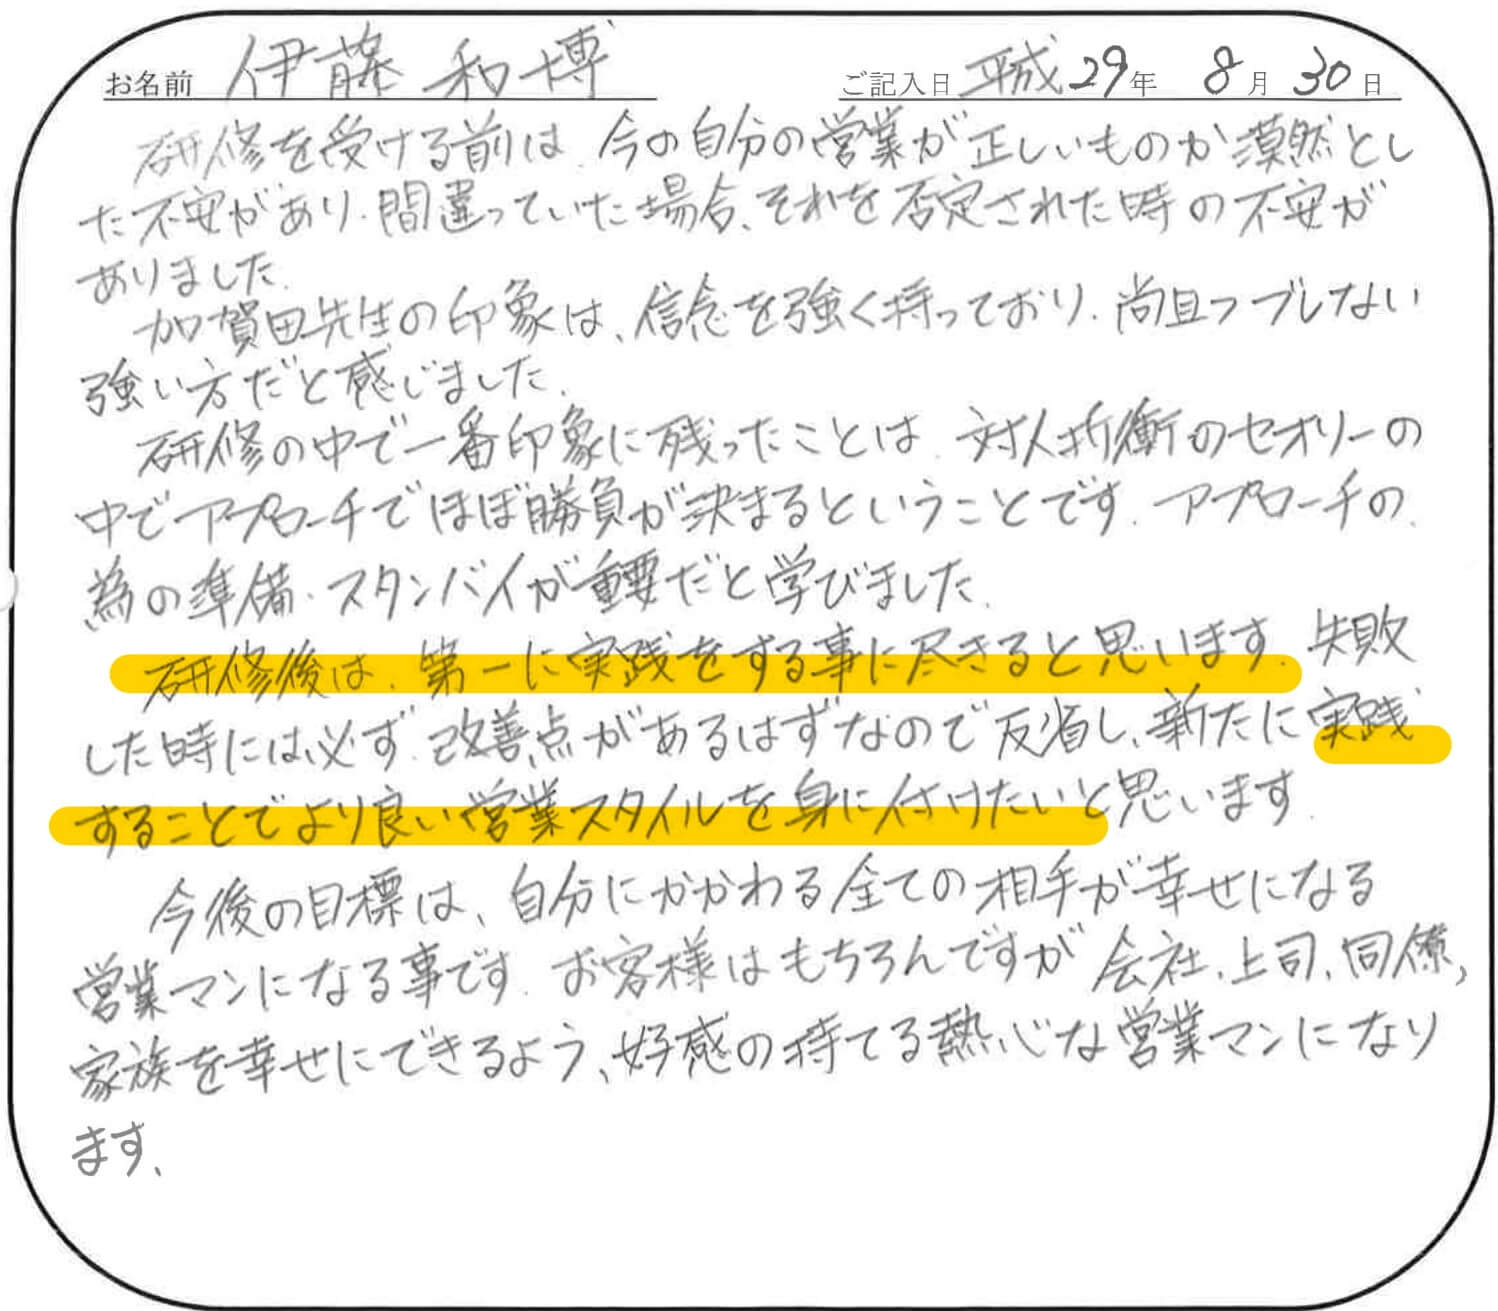 お名前 伊藤 和博 ご記入日 平成29年 8月 30日
研修を受ける前は、今の自分の営業が正しいものか漠然とし
た不安があり、間違っていた場合、それを否定された時の不安が
ありました。
加賀田先生の印象は、信念を強く持っており、尚且つブレない
強い方だと感じました。
研修の中で一番印象に残ったことは、対人折衝のセオリーの
中でアプローチでほぼ勝負が決まるということです。アプローチの、
為の準備、スタンバイが重要だと学びました。
研修後は、第一に実践をする事に尽きると思います。失敗
した時には必ず、改善点があるはずなので反省し、新たに実践
することでより良い営業スタイルを身に付けたいと思います。
今後の目標は、自分にかかわる全ての相手が幸せになる
営業マンになる事です。お客様はもちろんですが 会社、上司、同僚、
家族を幸せにできるよう、好感の持てる熱心な営業マンになり
ます、